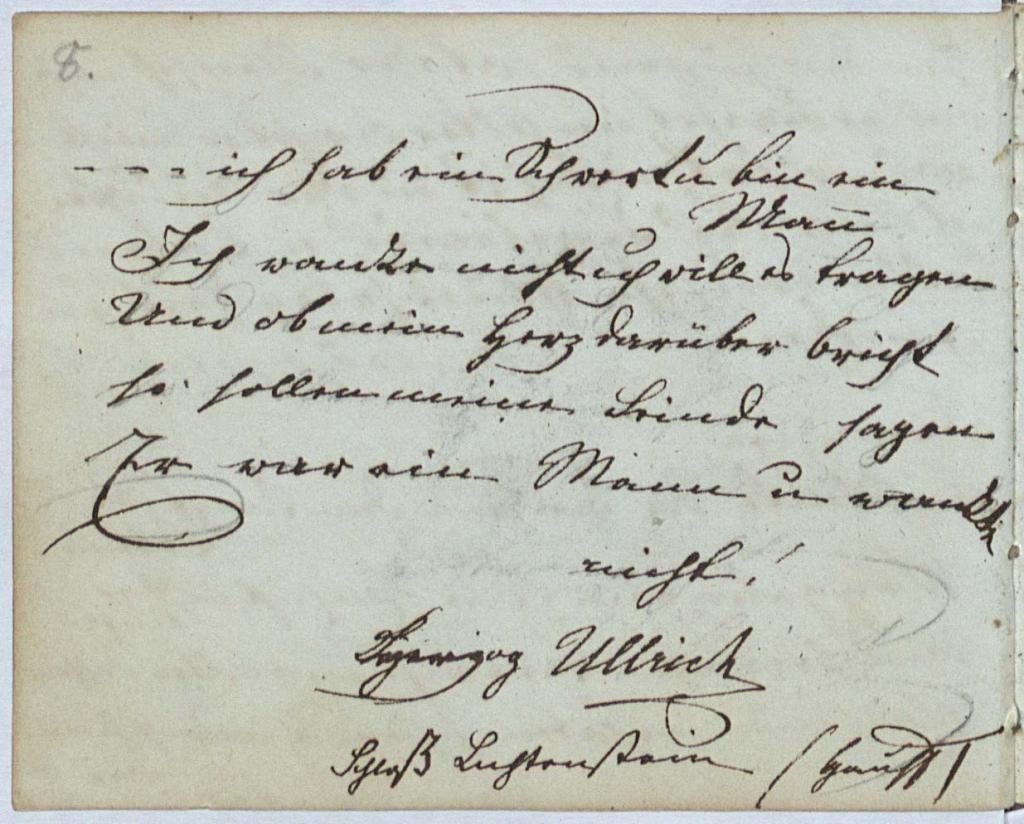 8.
- - - ich hab ein Schwert u bin ein
Mañ
Ich wanke nicht ich will es tragen
Und ob mein Herz darüber bricht
so sollen meine Feinde sagen
Er war ein Mann u wankte
nicht!
Herzog Ullrich
Schloß Lichtenstein (Hauff)